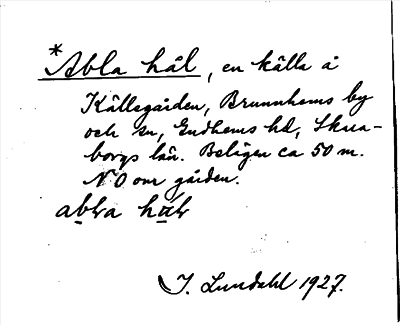 *Abla hål, en källa å
Källegården, Brunnhems by
och sn, Gudhems hd, Skara-
borgs län. Belägen ca 50 m.
NO om gården.
abla hål
I. Lundahl 1927.